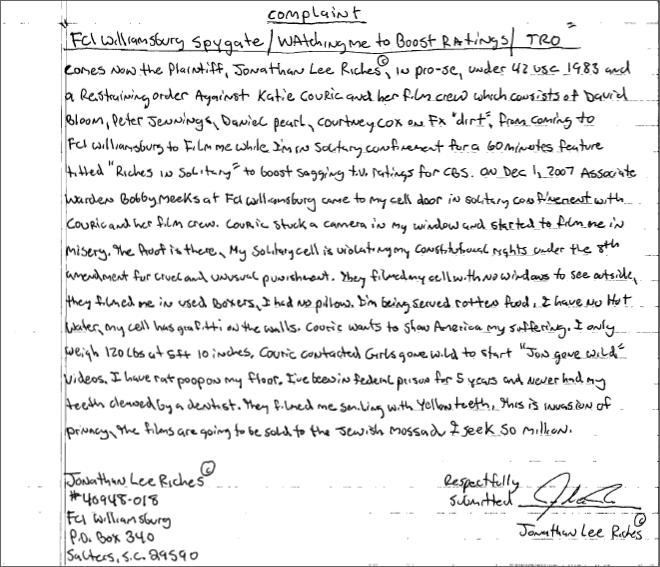 complaint
"FCI Williamsburg Spygate / WAtching me to Boost RAtings / TRO"
Comes Now the Plaintiff, Jonathan Lee Riches©, in pro-se, under 42 USC 1983 and
a Restraining order Against Katie Couric and her film crew which consists of David
Bloom, Peter Jennings, Daniel pearl, Courtney cox on FX "dirt", from coming to
FCI williamsburg to Film me while I'm in Solitary confinement for a 60 minutes feature
titled "Riches in Solitary" to boost sagging t.v. ratings for CBS. on Dec 1, 2007 Associate
Warden Bobby Meeks at FCI williamsburg came to my cell door in solitary confinement with
Couric and her film crew. Couric stuck a camera in my window and started to film me in
misery. The Proof is there, My Solitary cell is violating my Constitutional rights under the 8th
amendment for cruel and unusual punishment. They filmed my cell with no windows to see outside,
they filmed me in used Boxers, I had no pillow. I'm being served rotten food. I have no Hot
Water, my cell has grafitti on the walls. Couric wants to show America my suffering. I only
weigh 120 lbs at 5ft 10 inches, Couric contacted Girls gone wild to start "Jon gone wild"
videos. I have rat poop on my floor, I've been in federal prison for 5 years and never had my
teeth cleaned by a dentist. They filmed me smiling with yellow teeth, This is invasion of
privacy, The films are going to be sold to the Jewish Mossad. I seek 50 million.
Jonathan Lee Riches©
#40948-018
FCI Williamsburg
P.O. Box 340
Salters, S.C. 29590
Respectfully
submitted
Jonathan Lee Riches©